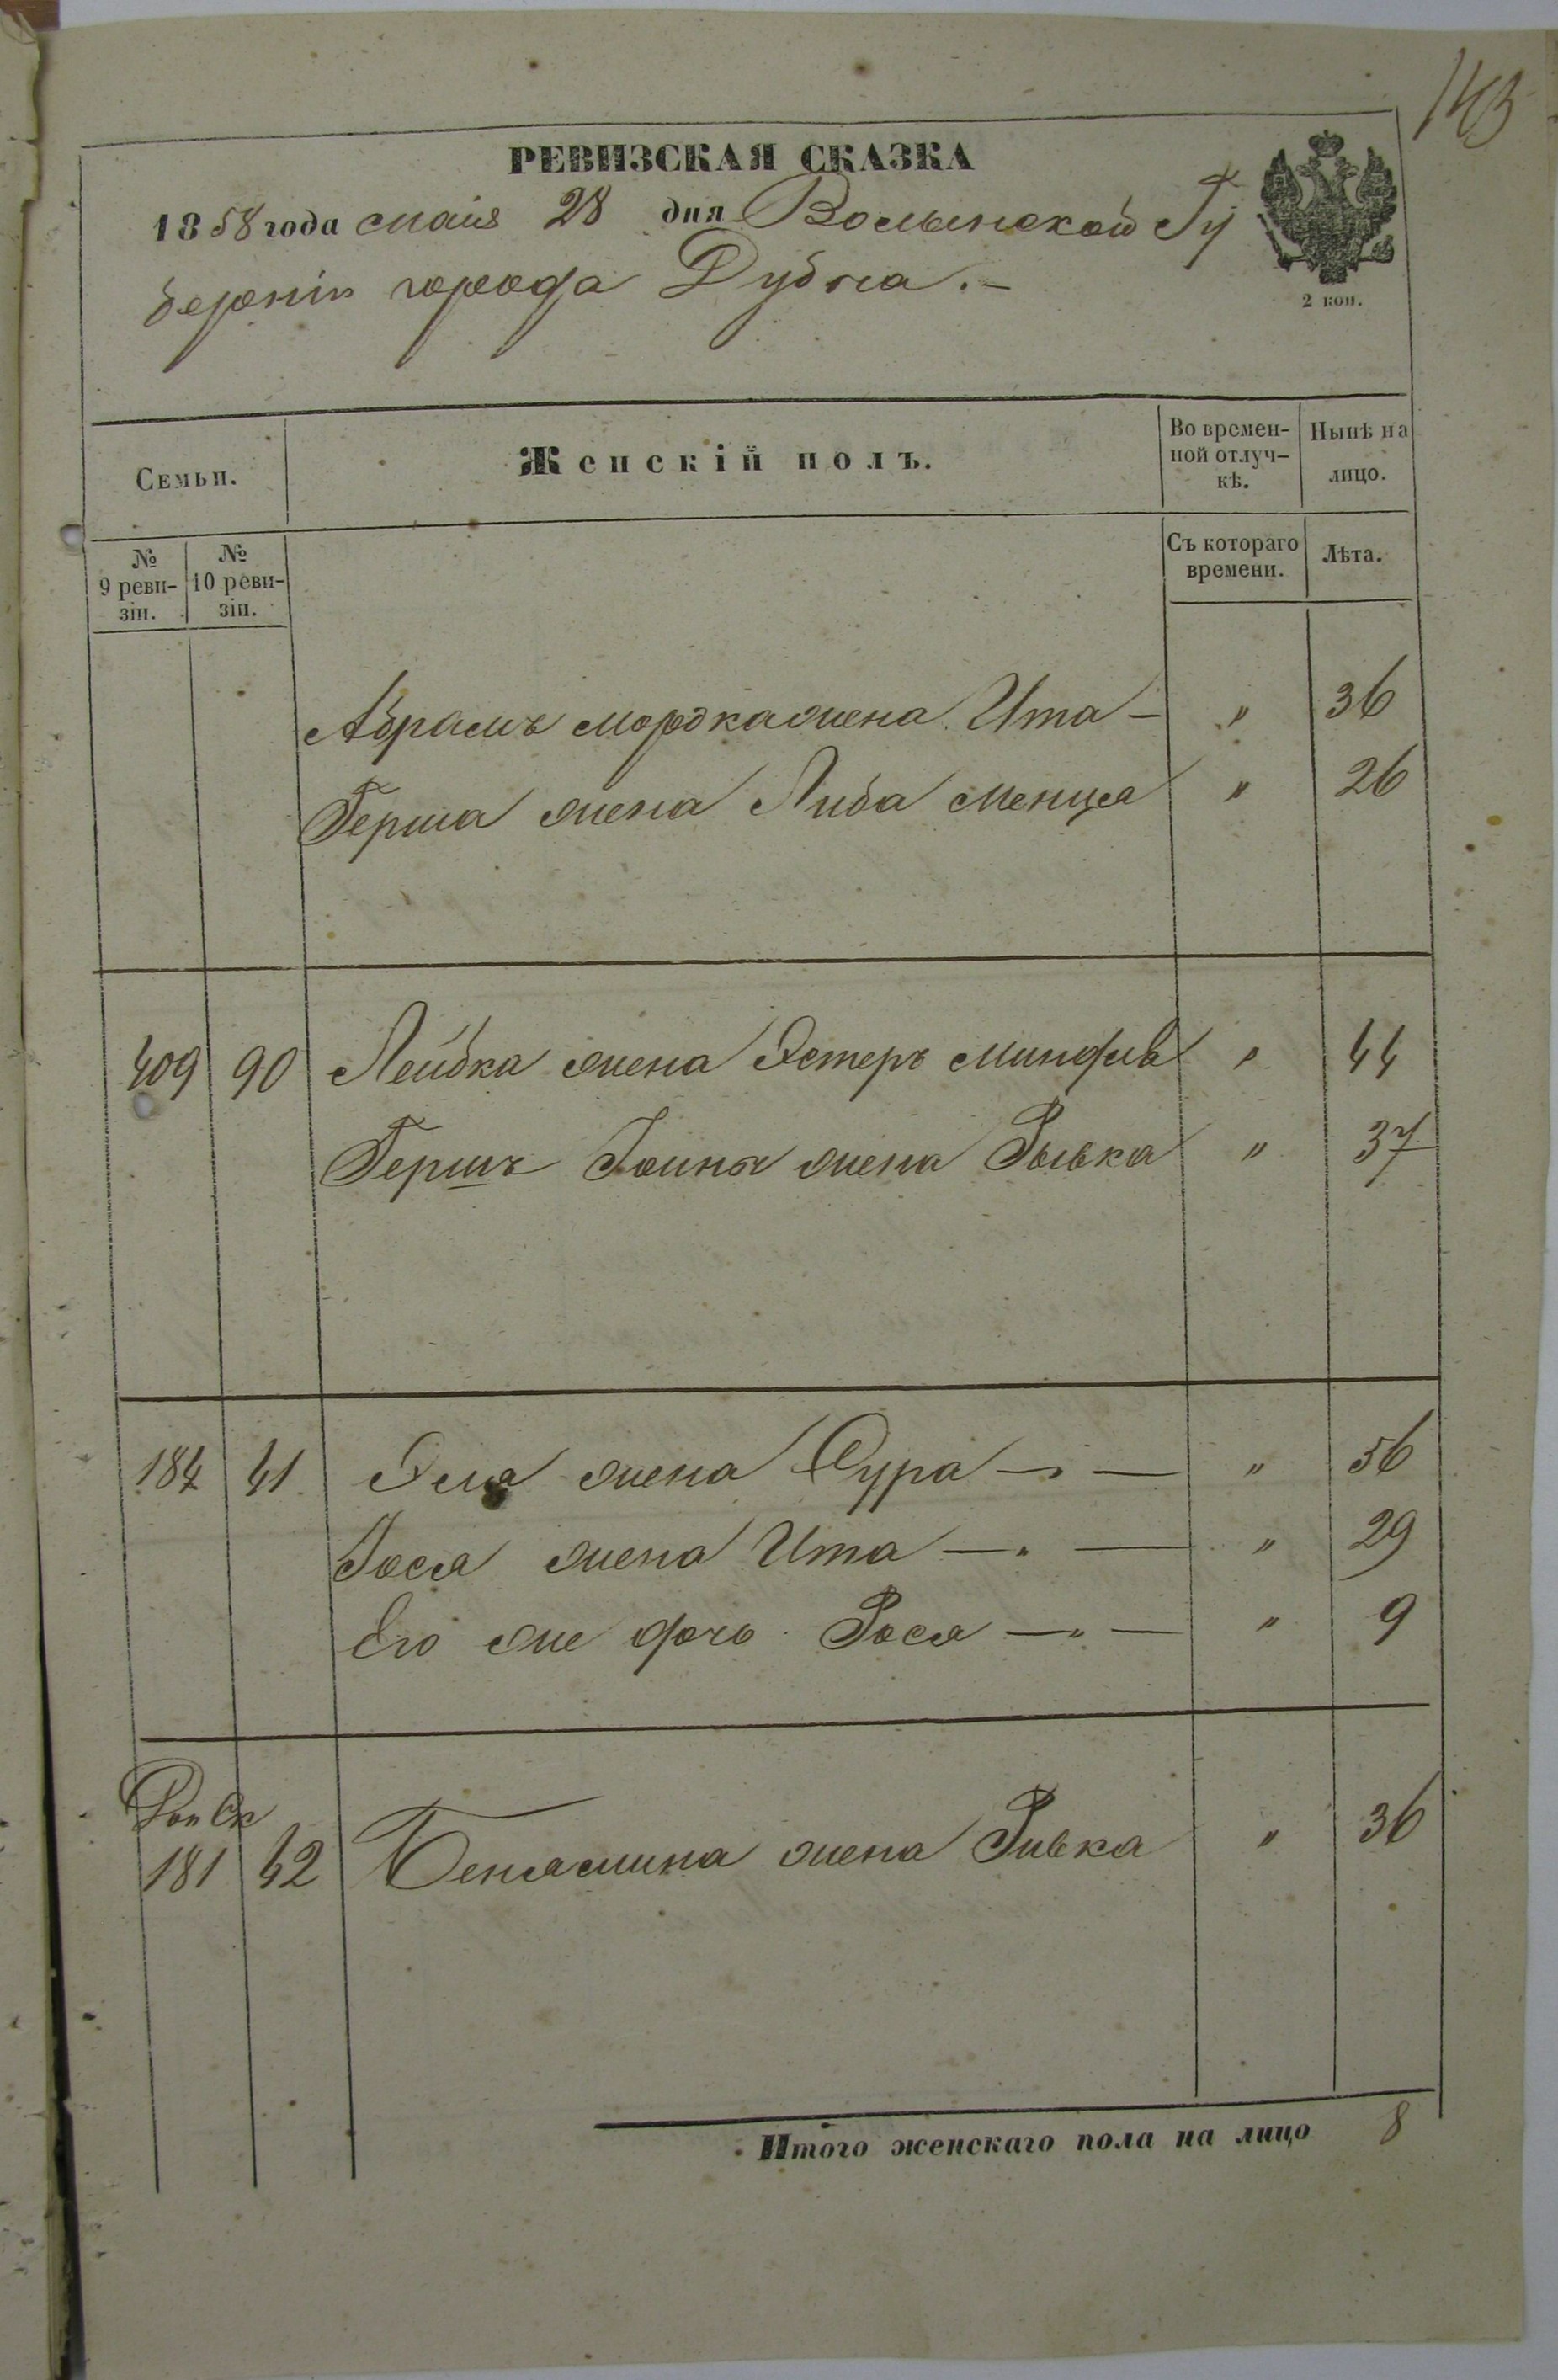 143
РЕВИЗСКАЯ СКАЗКА
1858 года маія 28 дня Волынской Гу
берніи города Дубна.-
2 коп.
Семьи.
Женскій полъ.
Во времен-
ной отлуч-
кѣ.
Нынѣ на
лицо.
№
9 реви-
зіи.
№
10 реви-
зіи.
Съ котораго
времени.
Лѣта.
Абрамъ Мордка жена Ита — " 36
Герша жена Либа Менця " 26
409 90 Лейбка жена Эстеръ Миндля " 44
Гершъ Іоины жена Рывка " 37
184 41 Эля жена Сура —"— " 56
Іося жена Ита —"— " 29
Его же дочь Рося —"— " 9
181 42 Бенямина жена Ривка " 36
Итого женскаго пола на лицо 8